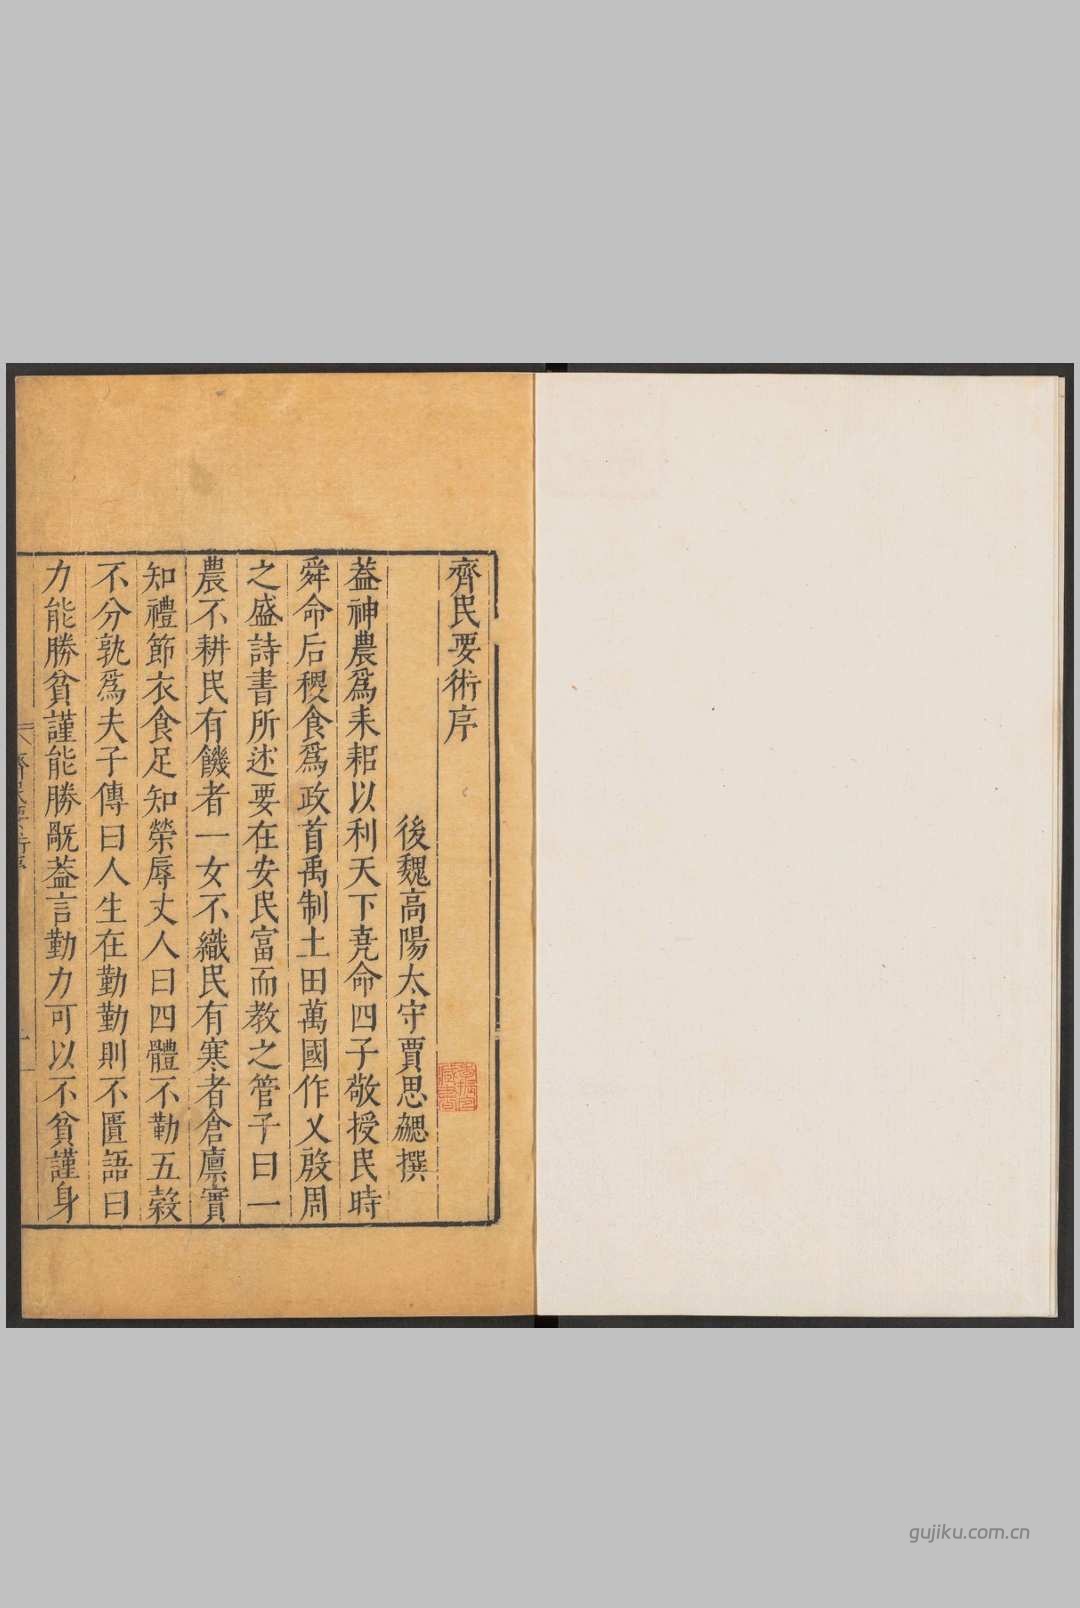 齊民要術序
後魏高陽太守賈思勰撰
葢神農爲耒耜以利天下堯命四子敬授民時
舜命后稷食爲政首禹制土田萬國作乂殷周
之盛詩書所述要在安民富而教之管子曰一
農不耕民有饑者一女不織民有寒者倉廪實
知禮節衣食足知榮辱丈人曰四體不勤五榖
不分孰爲夫子傳曰人生在勤勤則不匱語曰
力能勝貧謹能勝旤葢言勤力可以不貧謹身
gujiku.com.cn